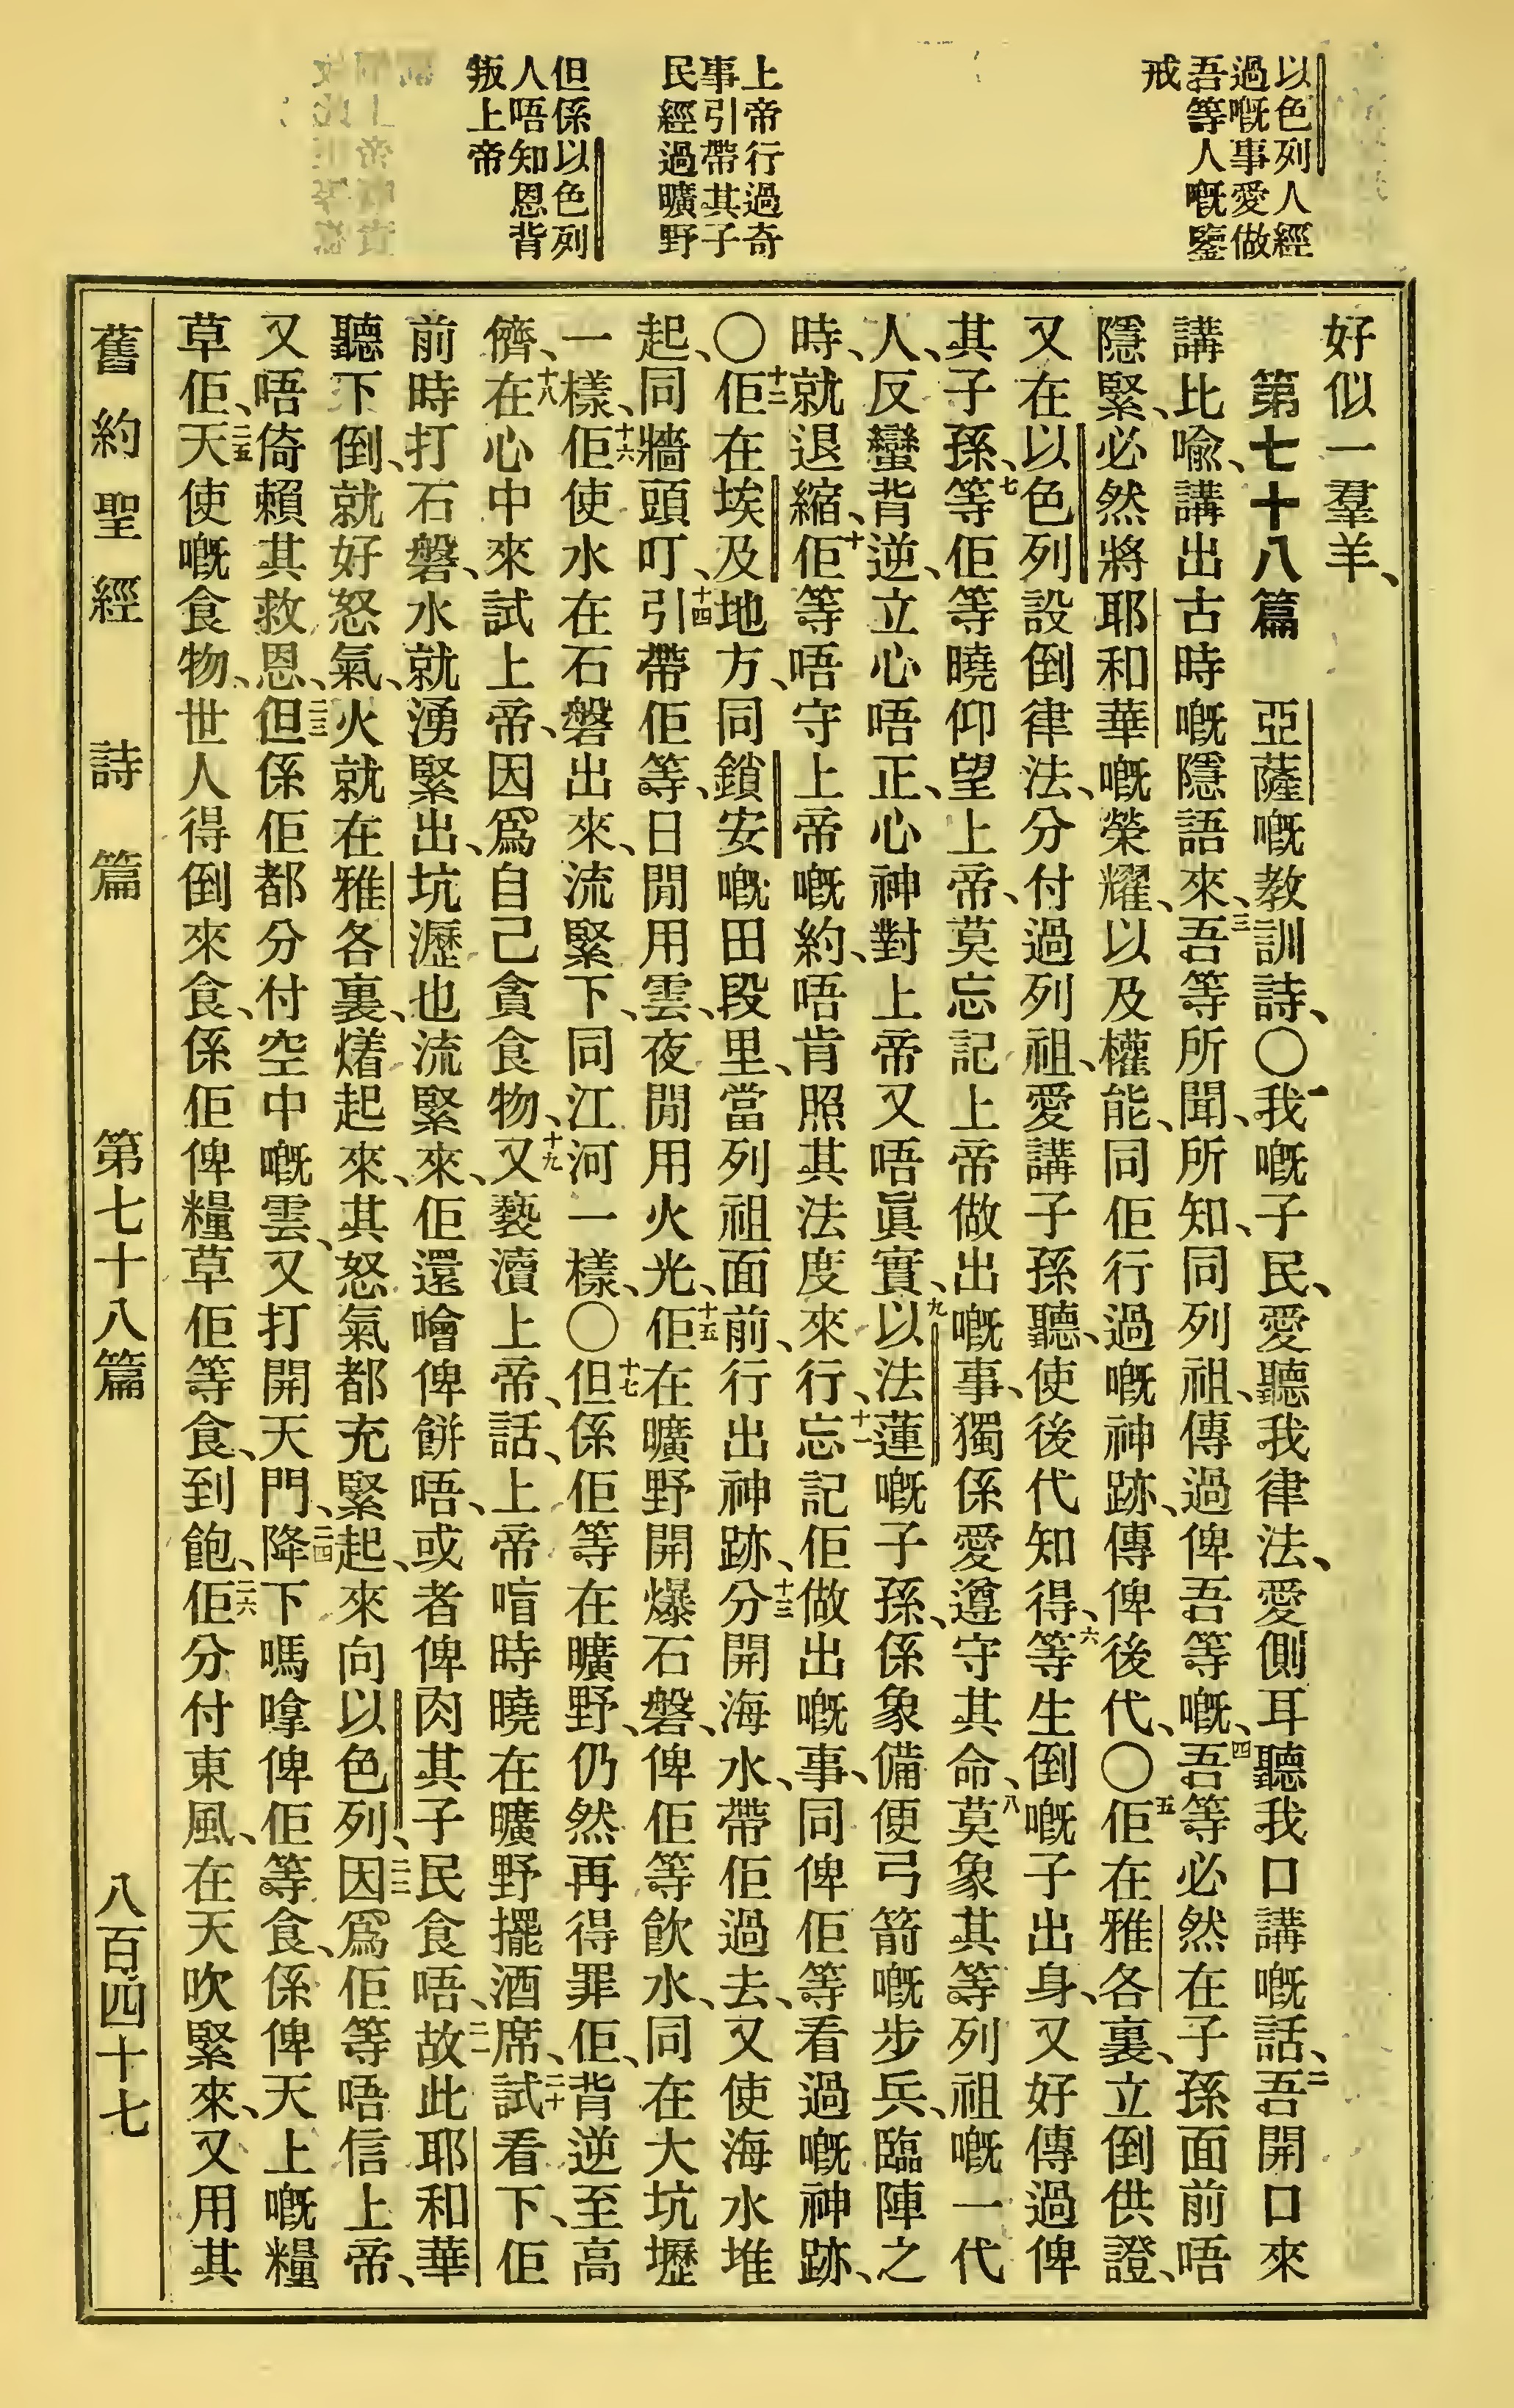 以色列人經
過嘅事愛做
吾等人嘅鑒
戒
上帝行過奇
事引帶其子
民經過曠野
但係以色列
人唔知恩背
叛上帝
好似一羣羊、
第七十八篇 亞薩嘅教訓詩、〇一我嘅子民、愛聽我律法、愛側耳聽我口講嘅話、二吾開口來
講比喩、講出古時嘅隱語來、三吾等所聞、所知、同列祖、傳過俾吾等嘅、四吾等必然在子孫面前唔
隱緊、必然將耶和華嘅榮耀、以及權能、同佢行過嘅神跡、傳俾後代、〇五佢在雅各裏、立倒供證、
又在以色列設倒律法、分付過列祖、愛講子孫聽、使後代知得、六等生倒嘅子出身、又好傳過俾
其子孫、七等佢等曉仰望上帝、莫忘記上帝做出嘅事、獨係愛遵守其命、八莫象其等列祖嘅一代
人、反蠻背逆、立心唔正、心神對上帝又唔眞實、九以法蓮嘅子孫、係象備便弓箭嘅步兵、臨陣之
時、就退縮、十佢等唔守上帝嘅約、唔肯照其法度來行、十一忘記佢做出嘅事、同俾佢等看過嘅神跡、
〇十二佢在埃及地方、同鎖安嘅田段里、當列祖面前、行出神跡、十三分開海水、帶佢過去、又使海水堆
起、同牆頭叮、十四引帶佢等、日閒用雲、夜閒用火光、十五佢在曠野開爆石磐、俾佢等飮水、同在大坑壢
一樣、十六佢使水在石磐出來、流緊下、同江河一樣、〇十七但係佢等在曠野、仍然再得罪佢、背逆至高
儕、十八在心中來試上帝、因爲自己貪食物、十九又褻瀆上帝、話、上帝唁時曉在曠野擺酒席、二十試看下、佢
前時打石磐、水就湧緊出、坑瀝也流緊來、佢還噲俾餅唔、或者俾肉其子民食唔、二一故此耶和華
聽下倒、就好怒氣、火就在雅各裏、㷮起來、其怒氣都充緊起、來向以色列、二二因爲佢等唔信上帝、
又唔倚賴其救恩、二三但係佢都分付空中嘅雲、又打開天門、二四降下嗎㖼俾佢等食、係俾天上嘅糧
草佢、二五天使嘅食物、世人得倒來食、係佢俾糧草佢等食、到飽、二六佢分付東風、在天吹緊來、又用其
舊約聖經 詩篇 第七十八篇 八百四十七